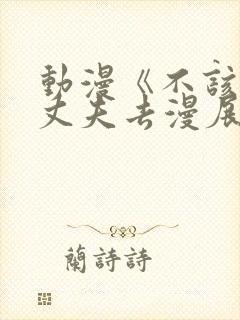 動漫《不該
丈夫去漫展
蘭詩詩